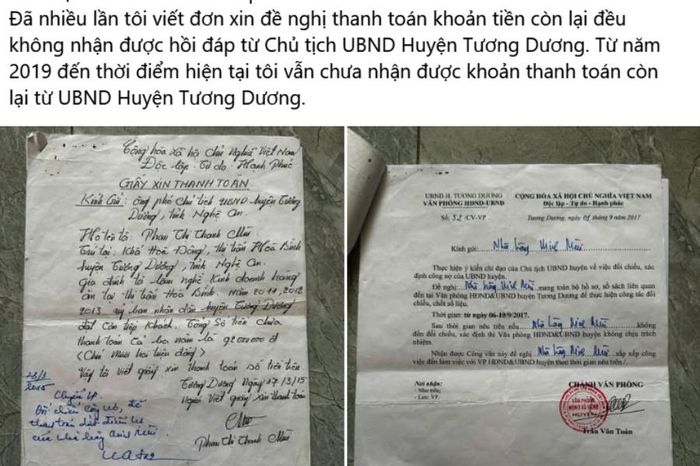 Đã nhiều lần tôi viết đơn xin đề nghị thanh toán khoản tiền còn lại đều
không nhận được hồi đáp từ Chủ tịch UBND Huyện Tương Dương. Từ năm
2019 đến thời điểm hiện tại tôi vẫn chưa nhận được khoản thanh toán còn
lại từ UBND Huyện Tương Dương.
Cộng hòa xã hội Chủ Nghĩa Việt Nam
Độc lập - Tự do - Hạnh Phúc
GIẤY XIN THANH TOÁN
Kính Gửi: ông phó Chủ tịch UBND huyện Tương
Dương, tỉnh Nghệ An.
Họ tên tôi: Phan Thị Thanh Mùi
Trú tại: Khối Hoà Đông, thị trấn Hoà Bình
huyện Tương Dương, tỉnh Nghệ An.
gia đình tôi làm nghề Kinh doanh hàng
ăn tại thị trấn Hoà Bình. Năm 2011, 2012
2013 uỷ ban nhân dân huyện Tương Dương
đặt Cơm tiếp Khách. Tổng Số tiền chưa
thanh toán Cả ba năm là 92.000.000 đ
(Chín mươi hai triệu đồng)
Vậy tôi viết giấy xin thanh toán số tiền trên
Tương Dương Ngày 17/3/15
Người viết giấy xin thanh toán
Phan Thị Thanh Mùi
2015
Chuyển VP
thanh toán dứt điểm
của nhà hàng
UBND H. TƯƠNG DƯƠNG
VĂN PHÒNG HĐND-UBND
Số: 52 CV-VP
CỘNG HÒA XÃ HỘI CHỦ NGHĨA VIỆT NAM
Độc lập - Tự do - Hạnh phúc
Tương Dương, ngày 01 tháng 9 năm 2017
Kính gửi: Nhà hàng Minh Mùi
Thực hiện ý kiến chỉ đạo của Chủ tịch UBND huyện về việc đối chiếu, xác
định công nợ của UBND huyện.
Đề nghị: Nhà hàng Minh Mùi mang toàn bộ hồ sơ, số sách liên quan
đến tại Văn phòng HĐND&UBND huyện Tương Dương để thực hiện công tác đối
chiếu, chốt số liệu.
Thời gian: từ ngày 06-10/9/2017.
Sau thời gian nêu trên nếu Nhà hàng Minh Mùi không
đến đối chiếu, xác định thì Văn phòng HĐND&UBND huyện không chịu trách
nhiệm.
Nhận được Công văn này đề nghị Nhà hàng Minh Mùi sắp xếp công
việc đến làm việc với VP HĐND&UBND huyện theo thời gian nêu trên./.
Nơi nhận:
- Như trên;
- Lưu: VP.
CHÁNH VĂN PHÒNG
Trần Văn Toản